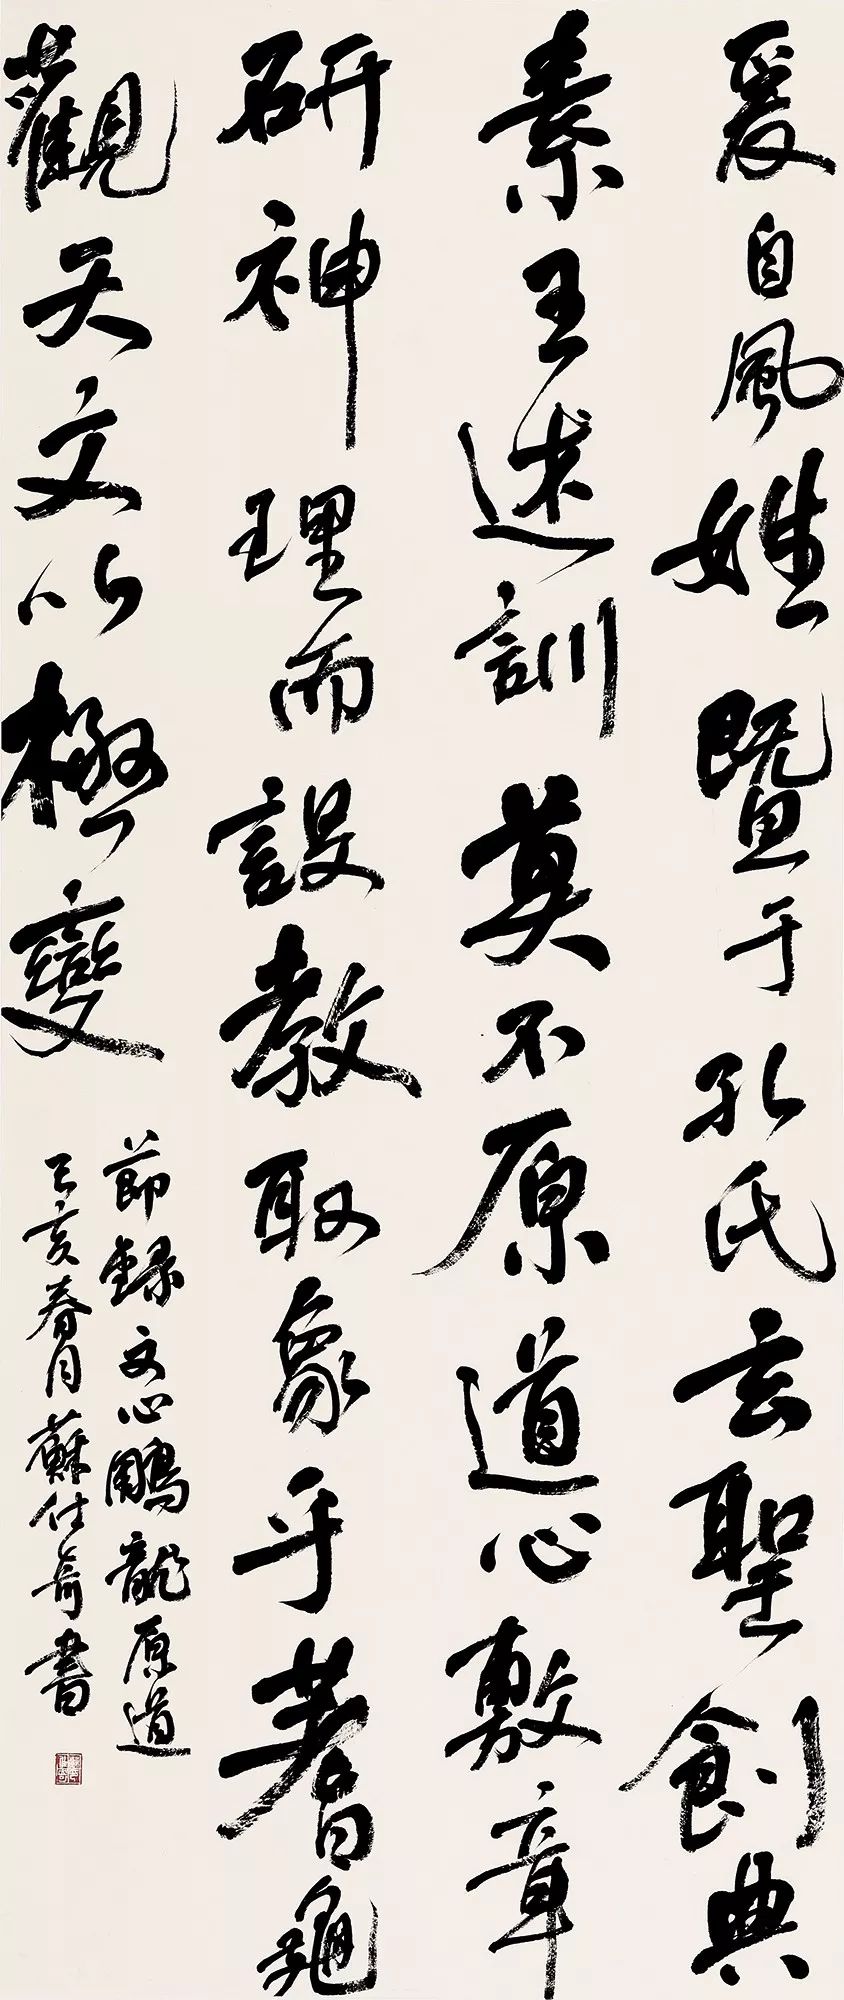 爰自風姓暨于孔氏玄聖創典
素王述訓莫不原道心敷章
研神理而設教取象乎蓍龜
觀天文以極變
節錄文心鵰龍原道
己亥春月蘇仕奇書